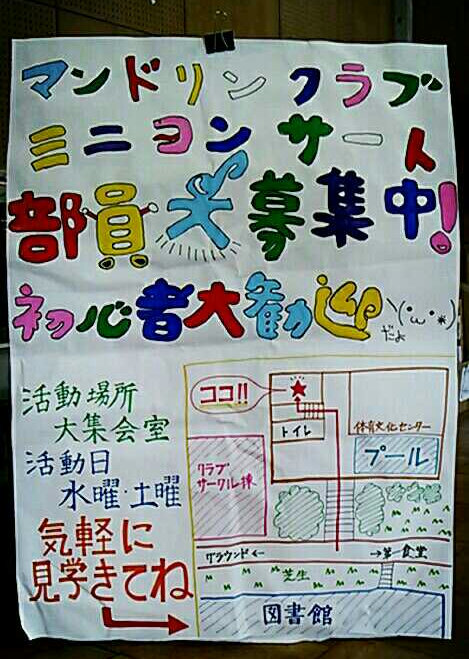 マンドリン クラブ
ミニコンサート
部員大募集中!
初心者大歓迎 \(・ω・*)
だよ
活動場所
大集会室
活動日
水曜・土曜
気軽に
見学きてね
ココ!!
トイレ
体育文化センター
プール
クラブ
サークル棟
グラウンド← →第一食堂
芝生
図書館